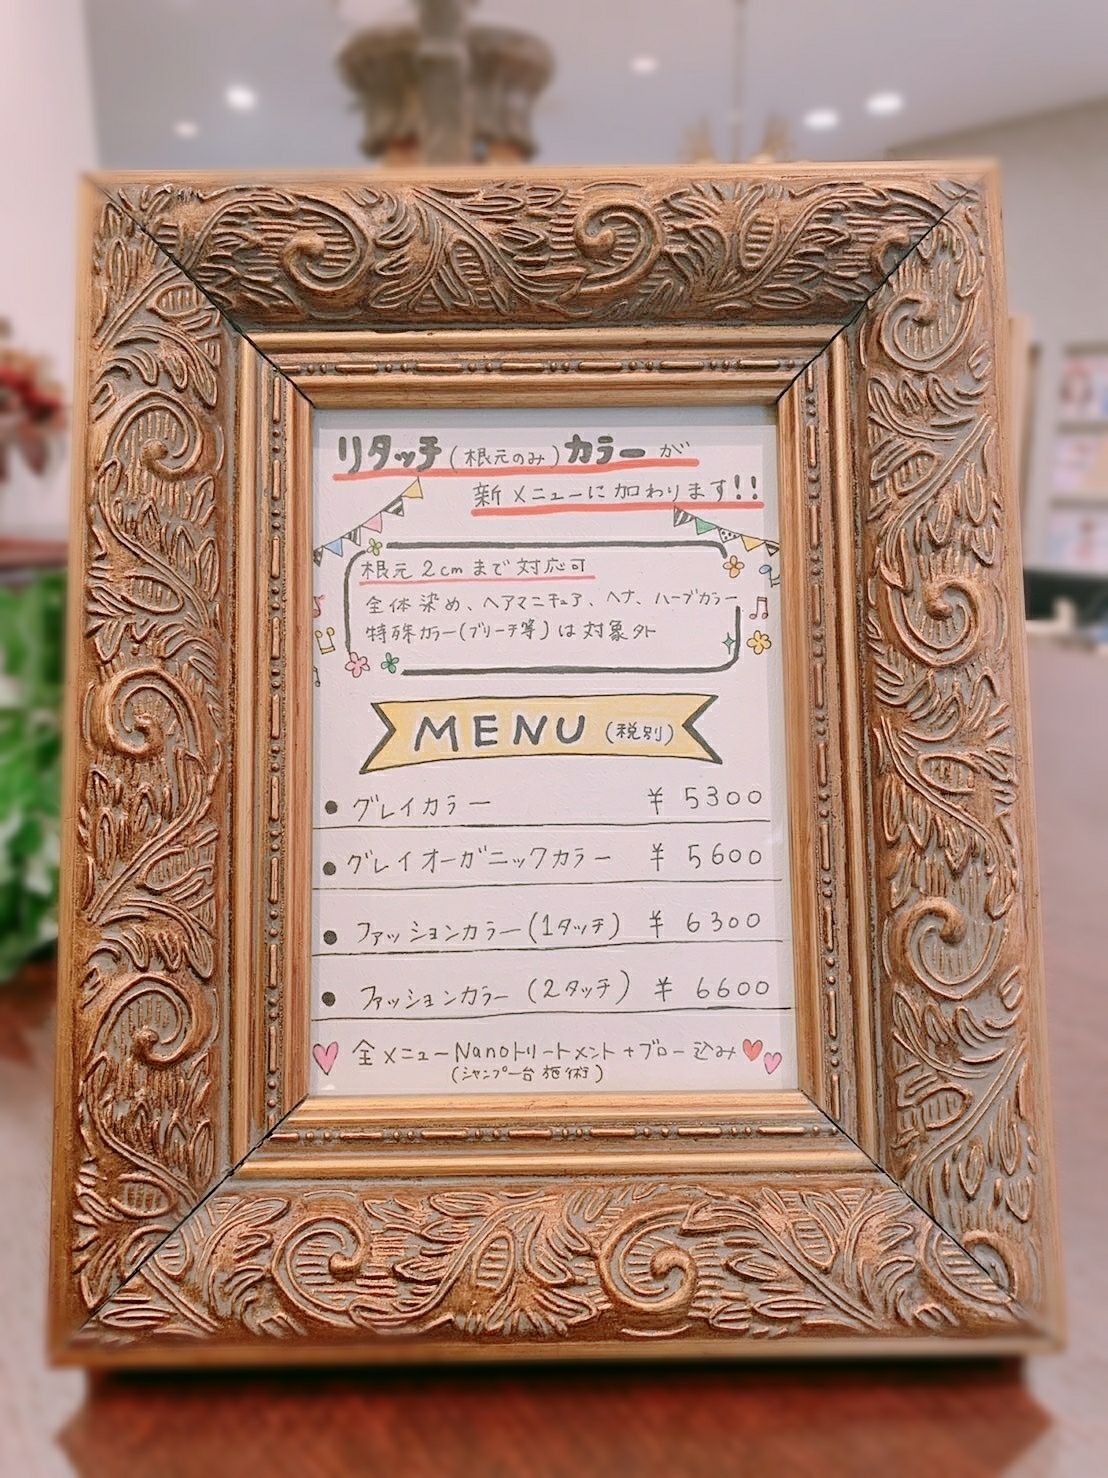 リタッチ(根元のみ)カラーが
新メニューに加わります!!
根元2cmまで対応可
全体染め、ヘアマニキュア、ヘナ、ハーブカラー
特殊カラー(ブリーチ等)は対象外
MENU(税別)
● グレイカラー ¥5300
● グレイオーガニックカラー ¥5600
● ファッションカラー(1タッチ) ¥6300
● ファッションカラー(2タッチ) ¥6600
全メニューNanoトリートメント+ブロー込み
(シャンプー台施術)